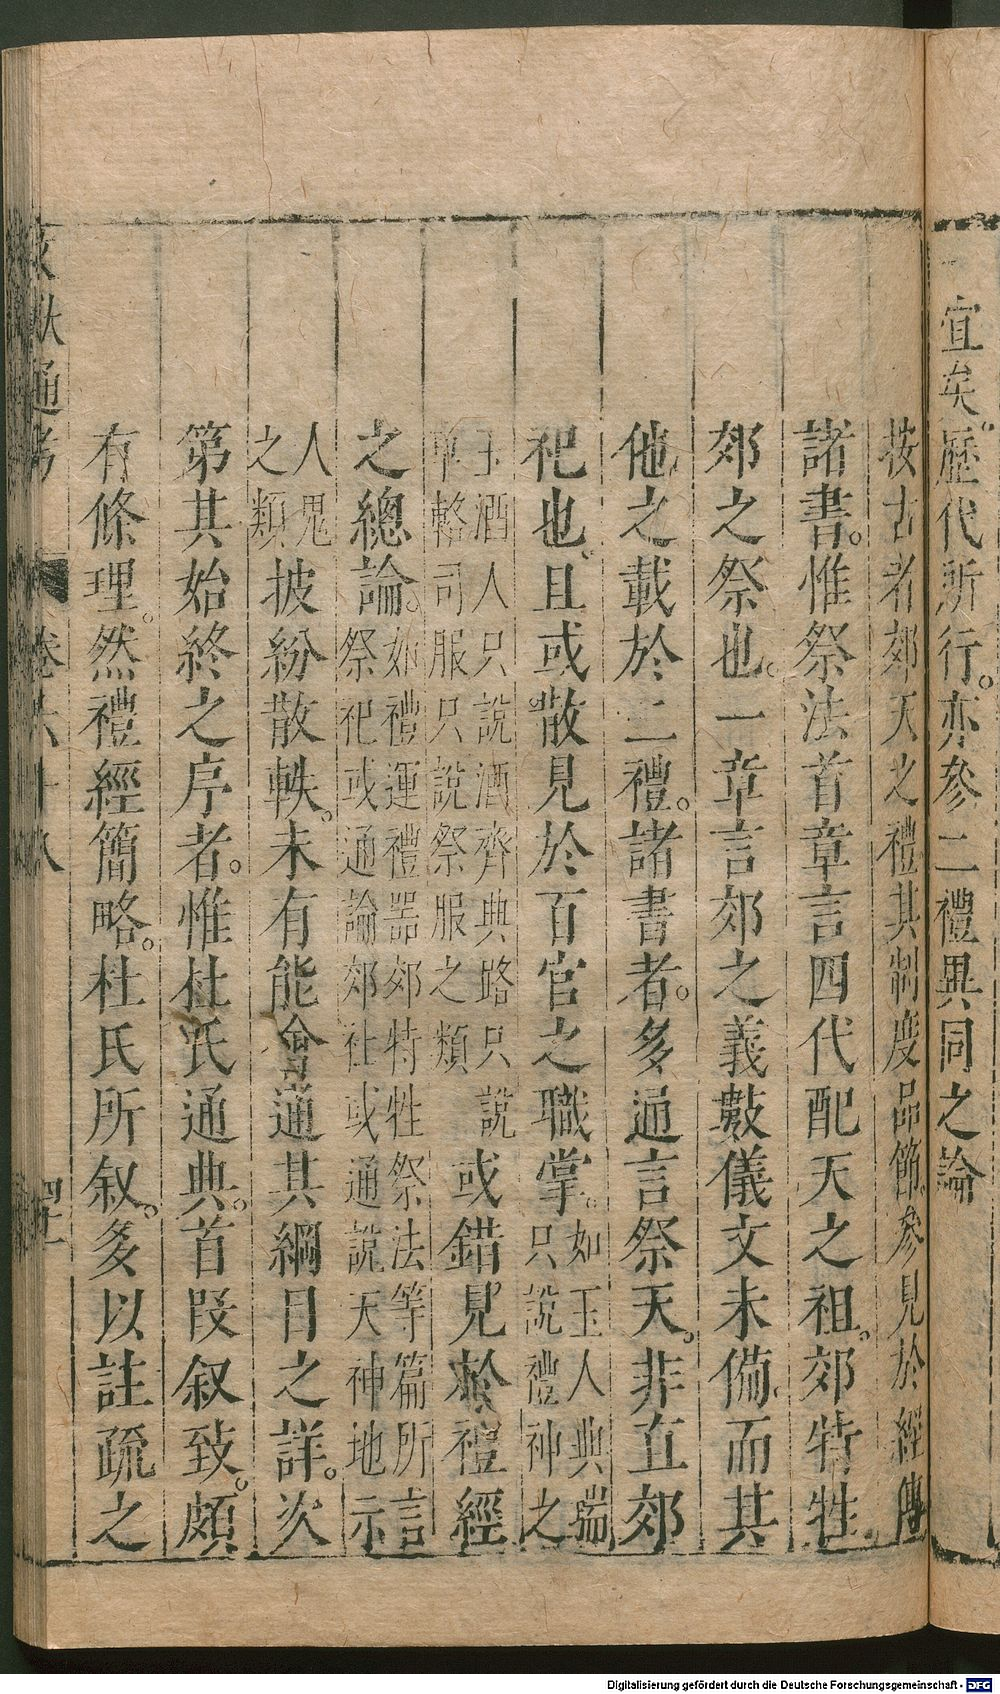 宜矣。歷代所行。亦參二禮異同之論
按古者郊天之禮其制度品節。參見於經傳
諸書。惟祭法首章言四代配天之祖。郊特牲
郊之祭也。一章言郊之義數儀文未備。而其
他之載於二禮。諸書者。多通言祭天。非直郊
祀也。且或散見於百官之職掌。如玉人典瑞
只說禮神之
玉酒人只說酒齊典路只說
車輅司服只說祭服之類
或錯見於禮經
之總論。如禮運禮器郊特牲祭法等篇所言
祭祀或通論郊社或通說天神地示
人鬼
之類
披紛散軼。未有能會通其綱目之詳。次
第其始終之序者。惟杜氏通典。首段叙致。頗
有條理。然禮經簡略。杜氏所叙。多以註疏之
文獻通考 卷六十八
Digitalisierung gefördert durch die Deutsche Forschungsgemeinschaft - DFG